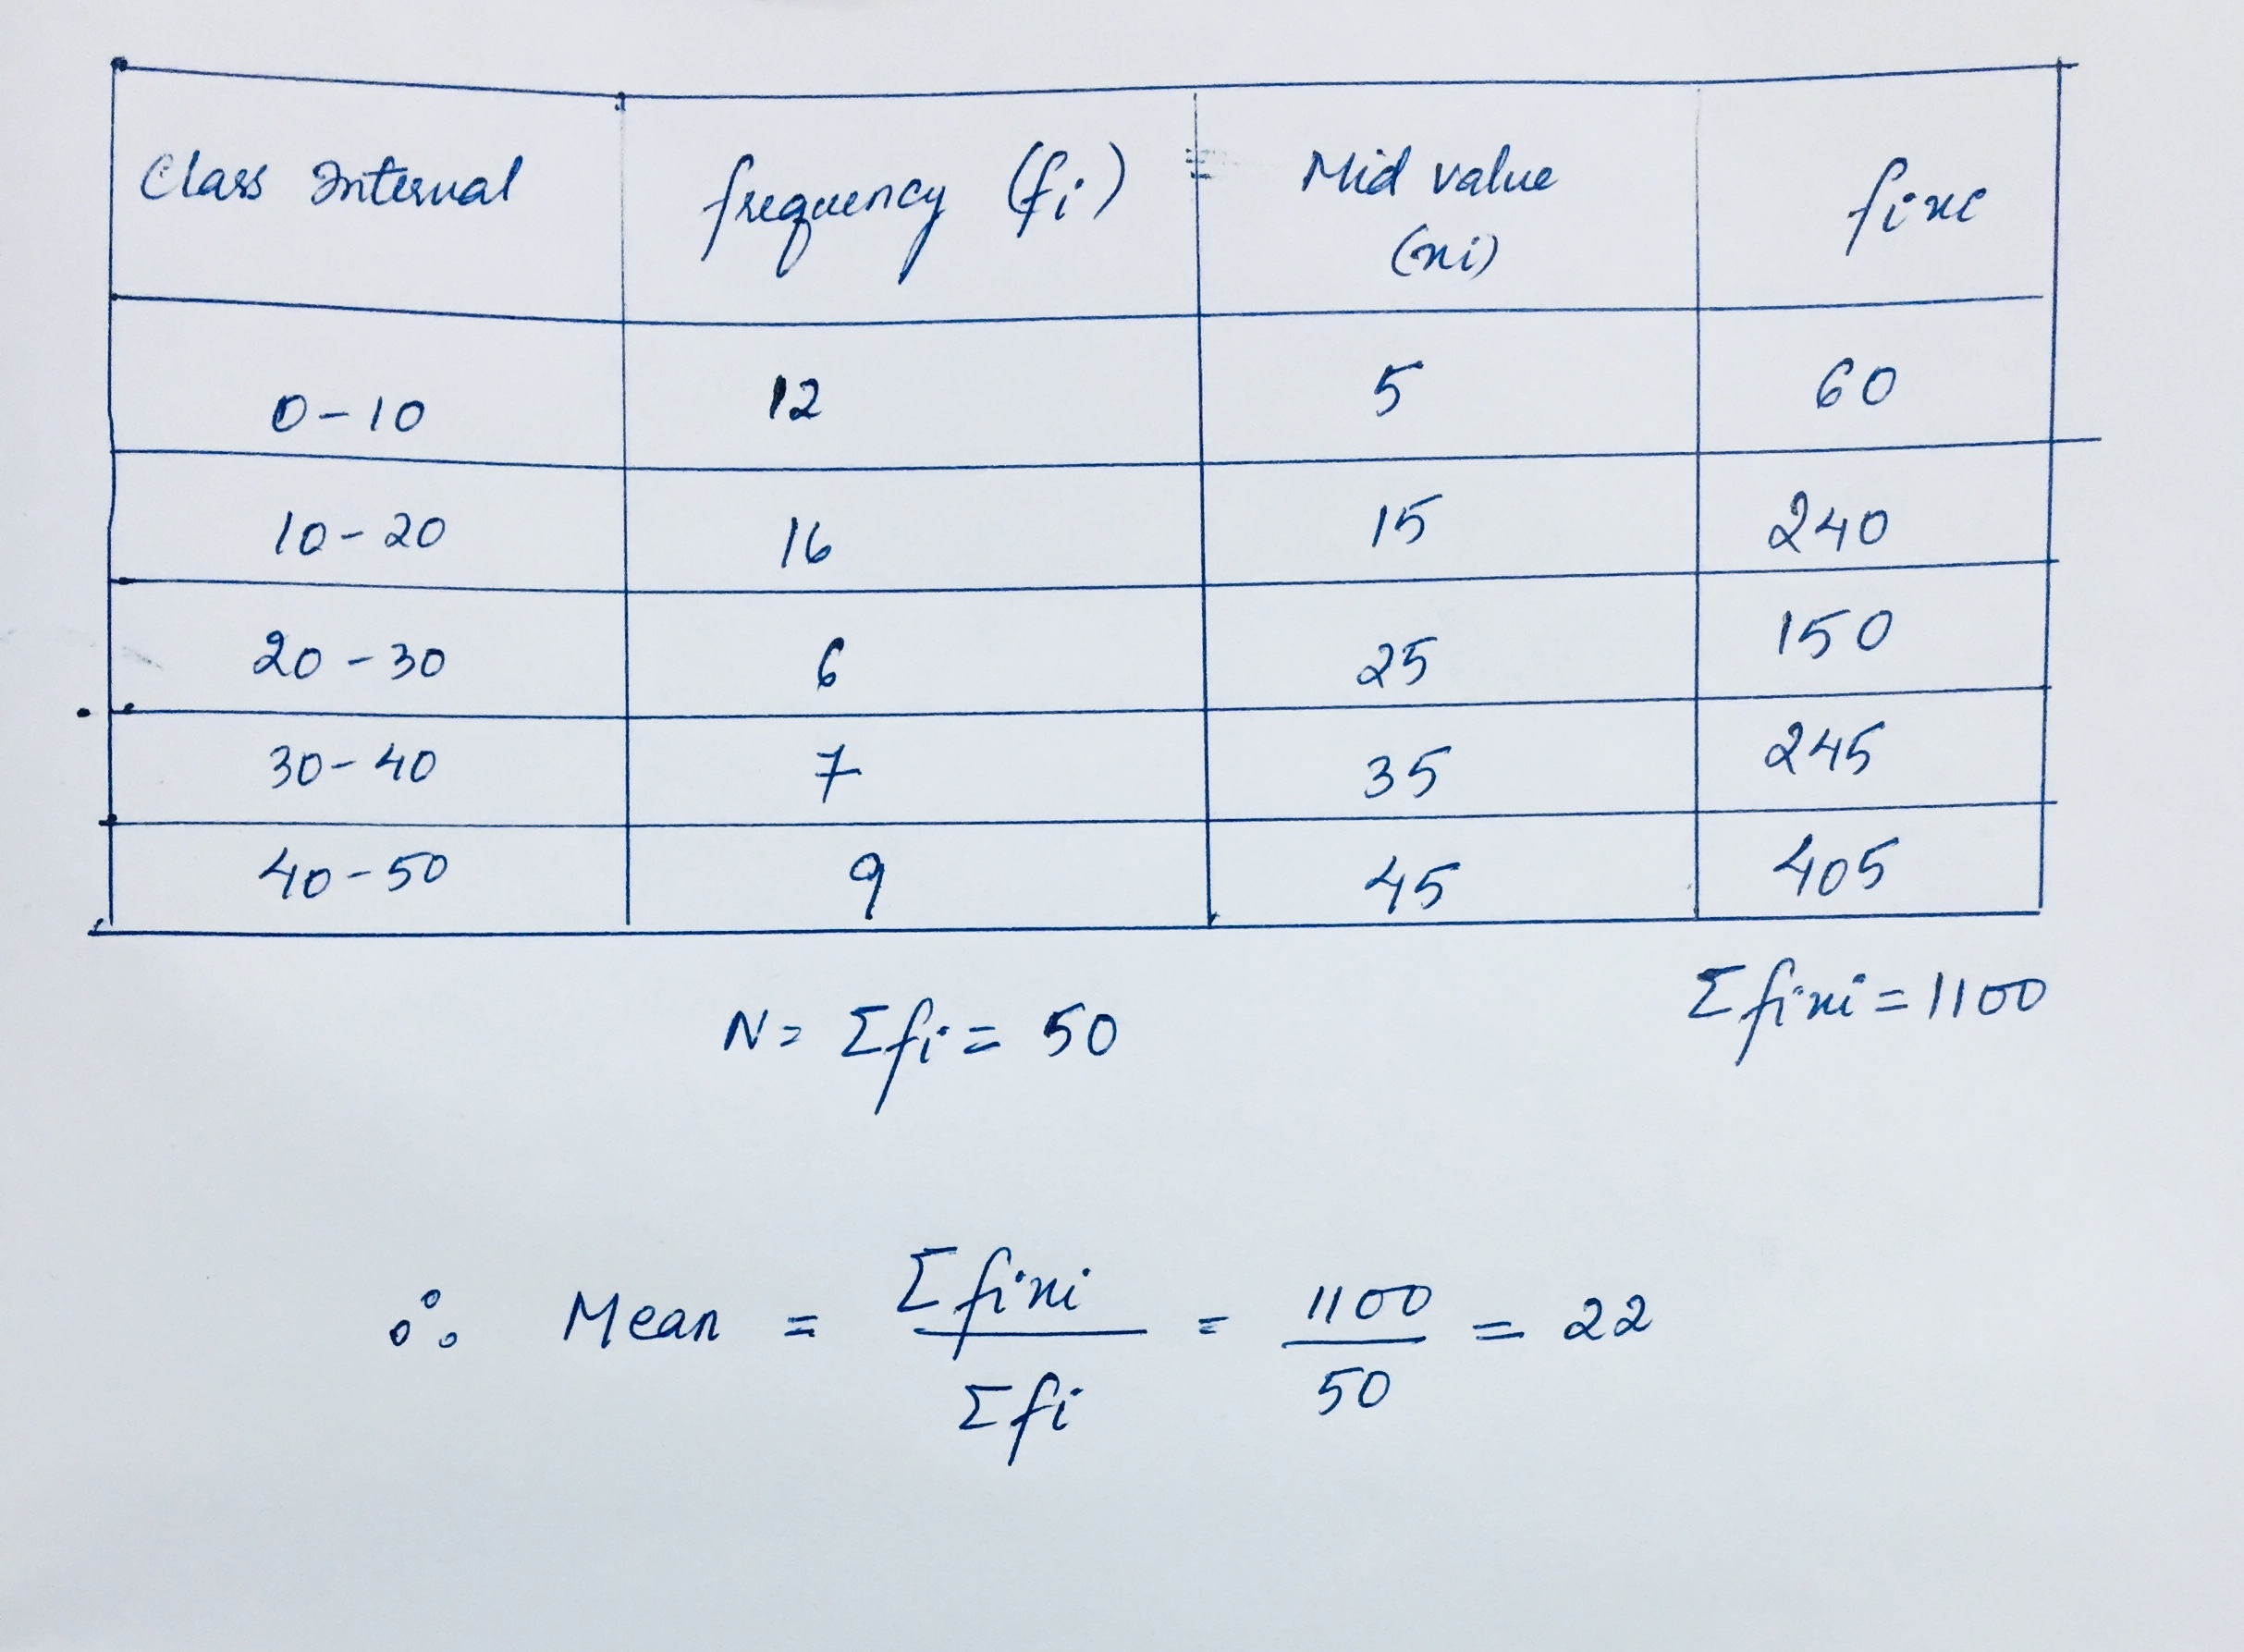 Class Interval frequency (fi) Mid value (xi) fixi
0-10 12 5 60
10-20 16 15 240
20-30 6 25 150
30-40 7 35 245
40-50 9 45 405
N = Σfi = 50 Σfixi = 1100
∴ Mean = Σfixi / Σfi = 1100 / 50 = 22